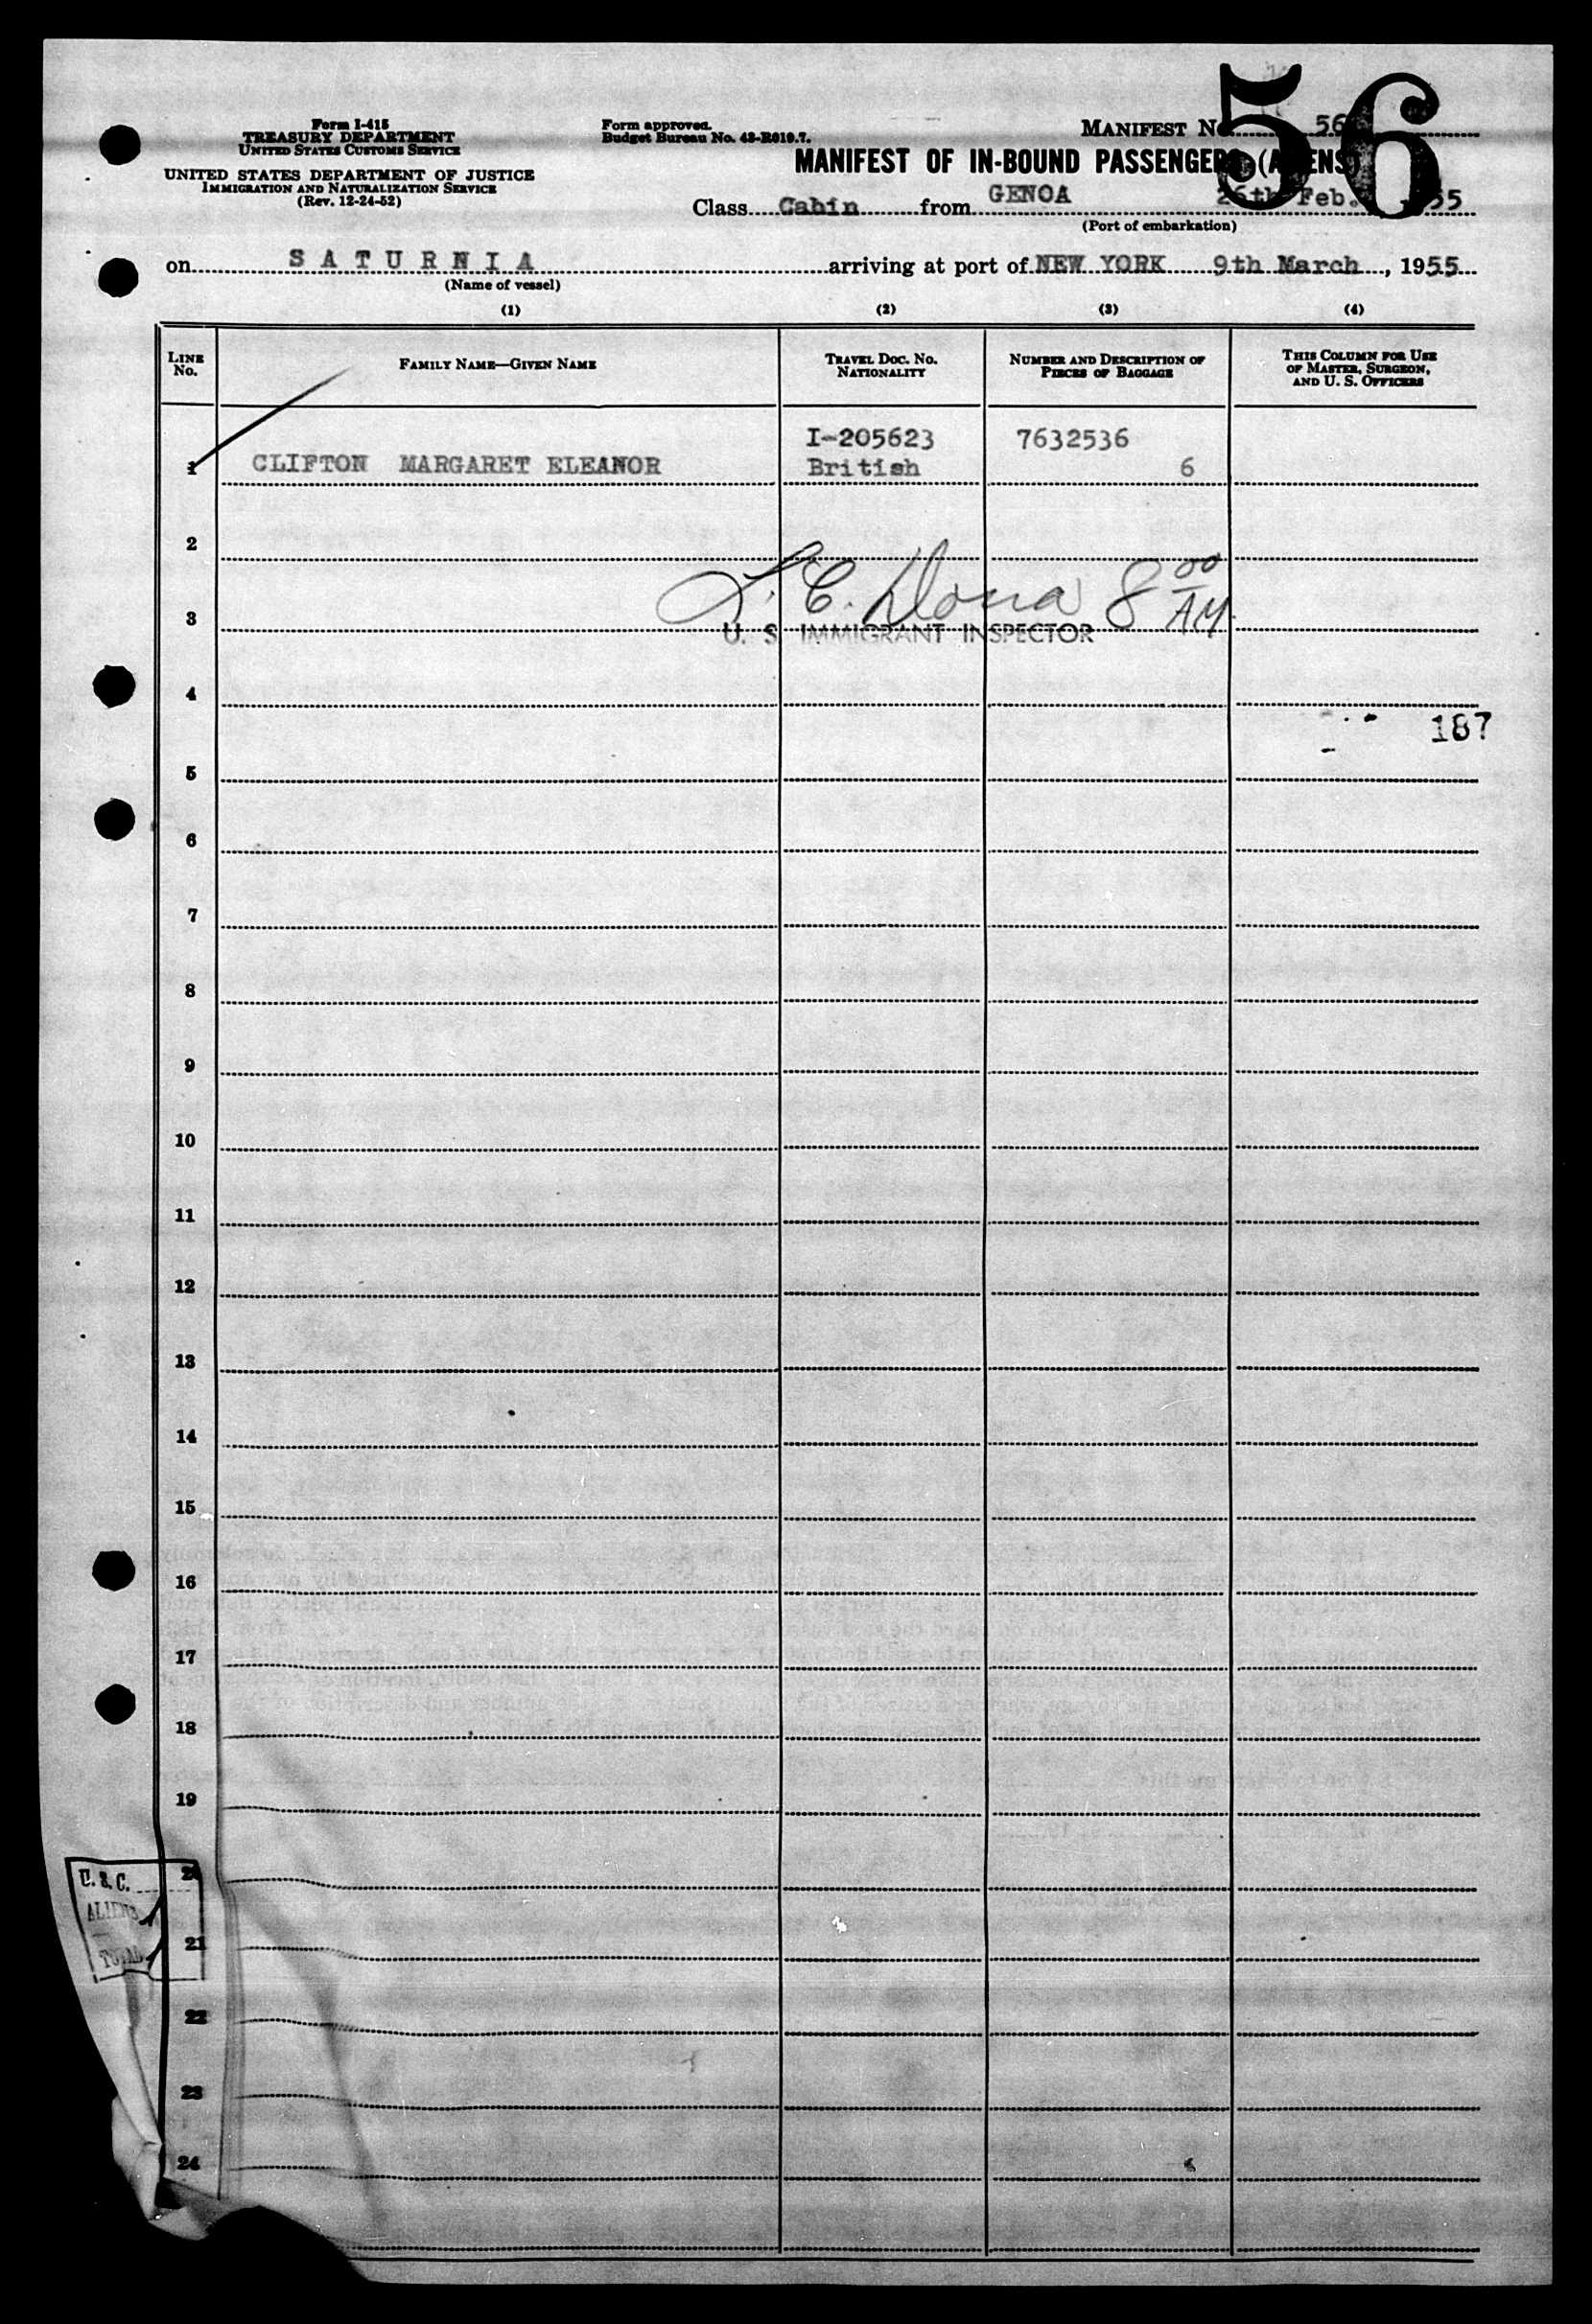 56
Form I-415
TREASURY DEPARTMENT
UNITED STATES CUSTOMS SERVICE
UNITED STATES DEPARTMENT OF JUSTICE
IMMIGRATION AND NATURALIZATION SERVICE
(Rev. 12-24-52)
Form approved.
Budget Bureau No. 43-R019.7.
MANIFEST No. 56
MANIFEST OF IN-BOUND PASSENGERS (ALIENS)
Class Cabin from GENOA 26th Feb. 1955
(Port of embarkation)
on SATURNIA arriving at port of NEW YORK 9th March, 1955
(Name of vessel)
(1) (2) (3) (4)
LINE No. FAMILY NAME—GIVEN NAME TRAVEL DOC. No. NATIONALITY NUMBER AND DESCRIPTION OF PIECES OF BAGGAGE THIS COLUMN FOR USE OF MASTER, SURGEON, AND U. S. OFFICERS
I-205623 7632536
1 CLIFTON MARGARET ELEANOR British 6
2
8 00 AM
3
U. S. IMMIGRANT INSPECTOR
4
187
5
6
7
8
9
10
11
12
13
14
15
16
17
18
19
20
U. S. C.
ALIENS
21
TOTAL
22
23
24